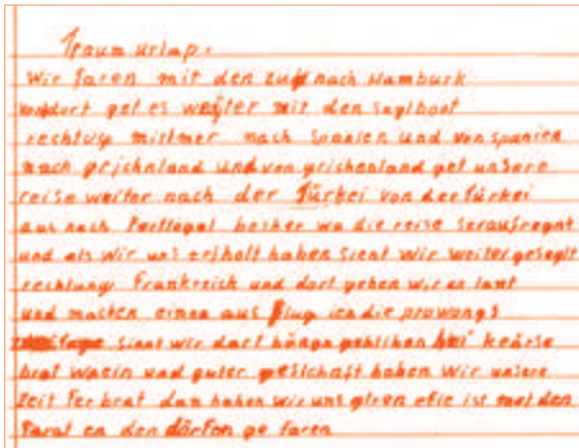 Traum urlap.
Wir faren mit den zug nach Hamburk
vondort get es weyter mit den seglboot
rechtug mittmer nach spanien und von spanien
nach grichnland und von grichenland get unsere
reise weiter nach der Türkei von der türkei
aus nach Porttogal besher wa die reise seraufregnt
und als wir uns erholt haben sient wir weiter geseglt
rechtung Frankreich und dort gehen wir an lant
und machten einen aus flug in die prowongs
sint wir dort hängn gebliben bei keärse
brot waein und guter geselchaft haben wir unsere
zeit ferbrat dan haben wir uns
farat en den dörfon ge faren